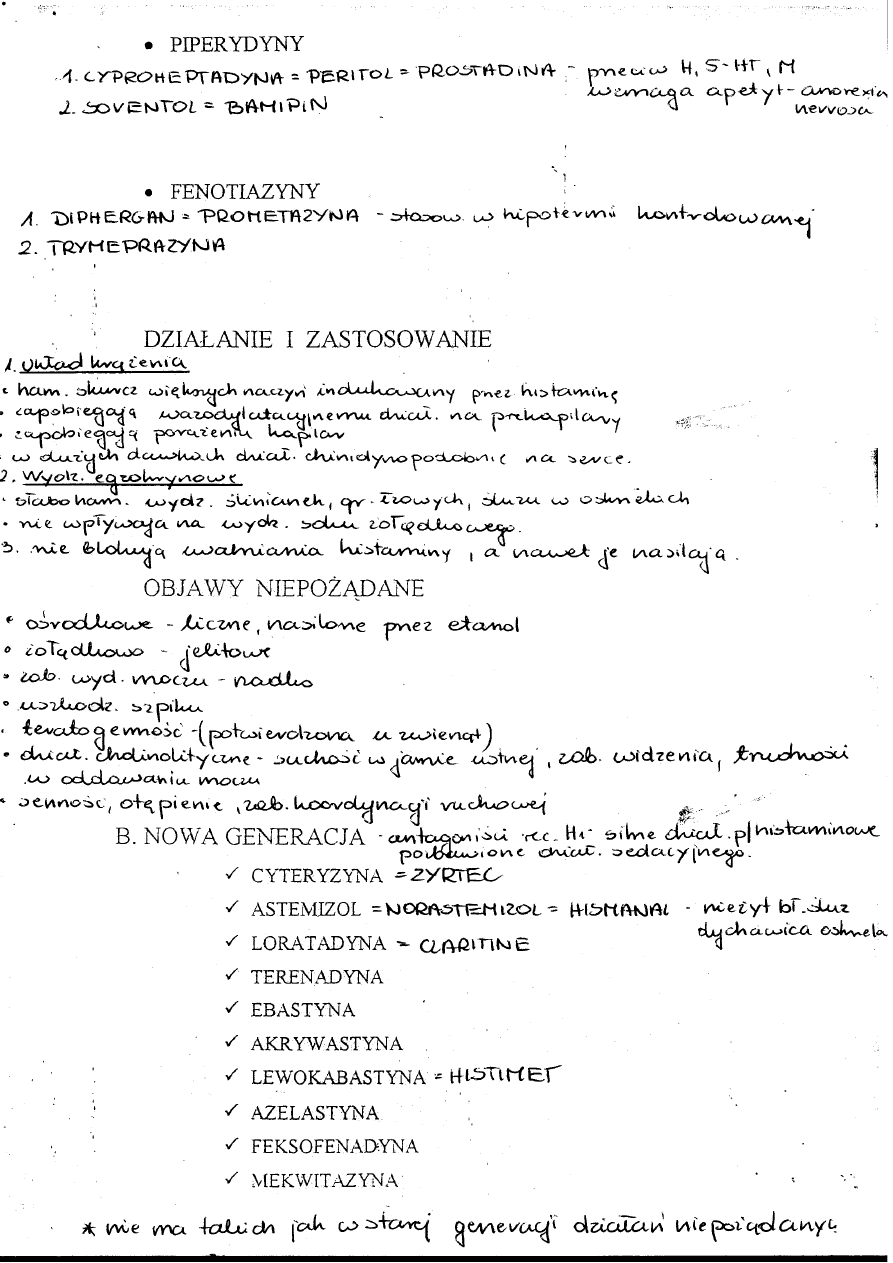 • PIPERYDYNY
1. CYPROHEPTADYNA = PERITOL = PROSTADINA - przeciw H, 5-HT, M
wzmaga apetyt - anorexia
nervosa
2. SOVENTOL = BAMIPIN
• FENOTIAZYNY
1. DIPHERGAN = PROMETAZYNA - stosow. w hipotermii kontrolowanej
2. TRYMEPRAZYNA
DZIAŁANIE I ZASTOSOWANIE
1. Układ krążenia
• ham. skurcz większych naczyń indukowany przez histaminę
• zapobiegają wazodylatacyjnemu dział. na prekapilary
• zapobiegają porażeniu kapilar
• w dużych dawkach dział. chinidynopodobnie na serce.
2. Wydz. egzokrynowe
• słabo ham. wydz. ślinianek, gr. łzowych, śluzu w oskrzelach
• nie wpływają na wydz. soku żołądkowego.
3. nie blokują uwalniania histaminy, a nawet je nasilają.
OBJAWY NIEPOŻĄDANE
• ośrodkowe - liczne, nasilone przez etanol
• żołądkowo - jelitowe
• zab. wyd. moczu - rzadko
• uszkodz. szpiku
• teratogenność - (potwierdzona u zwierząt)
• dział. cholinolityczne - suchość w jamie ustnej, zab. widzenia, trudności
w oddawaniu moczu
• senność, otępienie, zab. koordynacji ruchowej
B. NOWA GENERACJA - antagoniści rec. H1 silne dział. p/histaminowe
pozbawione dział. sedacyjnego.
✓ CYTERYZYNA = ZYRTEC
✓ ASTEMIZOL = NORASTEMIZOL = HISMANAL - nieżyt bł. śluz
dychawica oskrzela
✓ LORATADYNA = CLARITINE
✓ TERENADYNA
✓ EBASTYNA
✓ AKRYWASTYNA
✓ LEWOKABASTYNA = HISTIMET
✓ AZELASTYNA
✓ FEKSOFENADYNA
✓ MEKWITAZYNA
* nie ma takich jak w starej generacji działań niepożądanych